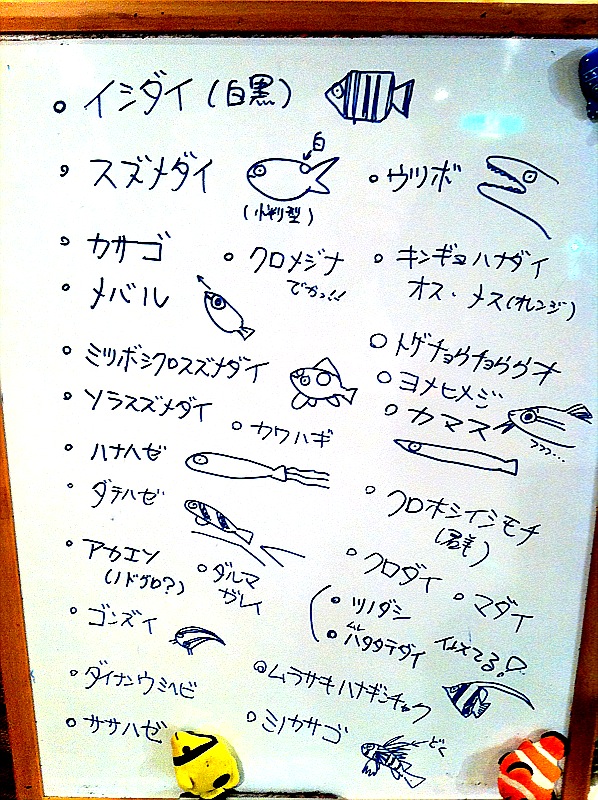 イシダイ(白黒)
白
スズメダイ
(小判型)
ウツボ
カサゴ
クロメジナ
でかっ!!
キンギョハナダイ
オス・メス(オレンジ)
メバル
トゲチョウチョウウオ
ミツボシクロスズメダイ
ヨメヒメジ
ソラスズメダイ
カワハギ
カマス
ハナハゼ
ダテハゼ
クロホシイシモチ
(君羊)
アカエソ
(ノドグロ?)
ダルマ
ガレイ
クロダイ
マダイ
ツノダシ
ムレ
ハタタテダイ
イムズてる!?
ゴンズイ
ダイナンウミヘビ
ムラサキハナギンチャク
ササハゼ
ミノカサゴ
どく